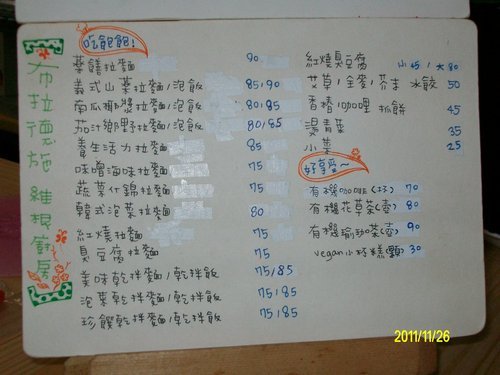 布拉德施 維根廚房
吃飽飽!
藥膳拉麵 90
義式山菜拉麵/泡飯 85/90
南瓜椰漿拉麵/泡飯 80/85
茄汁鄉野拉麵/泡飯 80/85
養生活力拉麵 85
味噌海味拉麵 75
蔬菜什錦拉麵 75
韓式泡菜拉麵 80
紅燒拉麵 75
臭豆腐拉麵 75
美味乾拌麵/乾拌飯 75/85
泡菜乾拌麵/乾拌飯 75/85
珍饌乾拌麵/乾拌飯 75/85
紅燒臭豆腐 小45/大80
艾草/全麥/芥末 水餃 50
香椿/咖哩 抓餅 45
燙青菜 35
小菜 25
好享受~
有機咖啡(杯) 70
有機花草茶(壺) 80
有機瑜珈茶(壺) 90
vegan小杯糕(顆) 30
2011/11/26